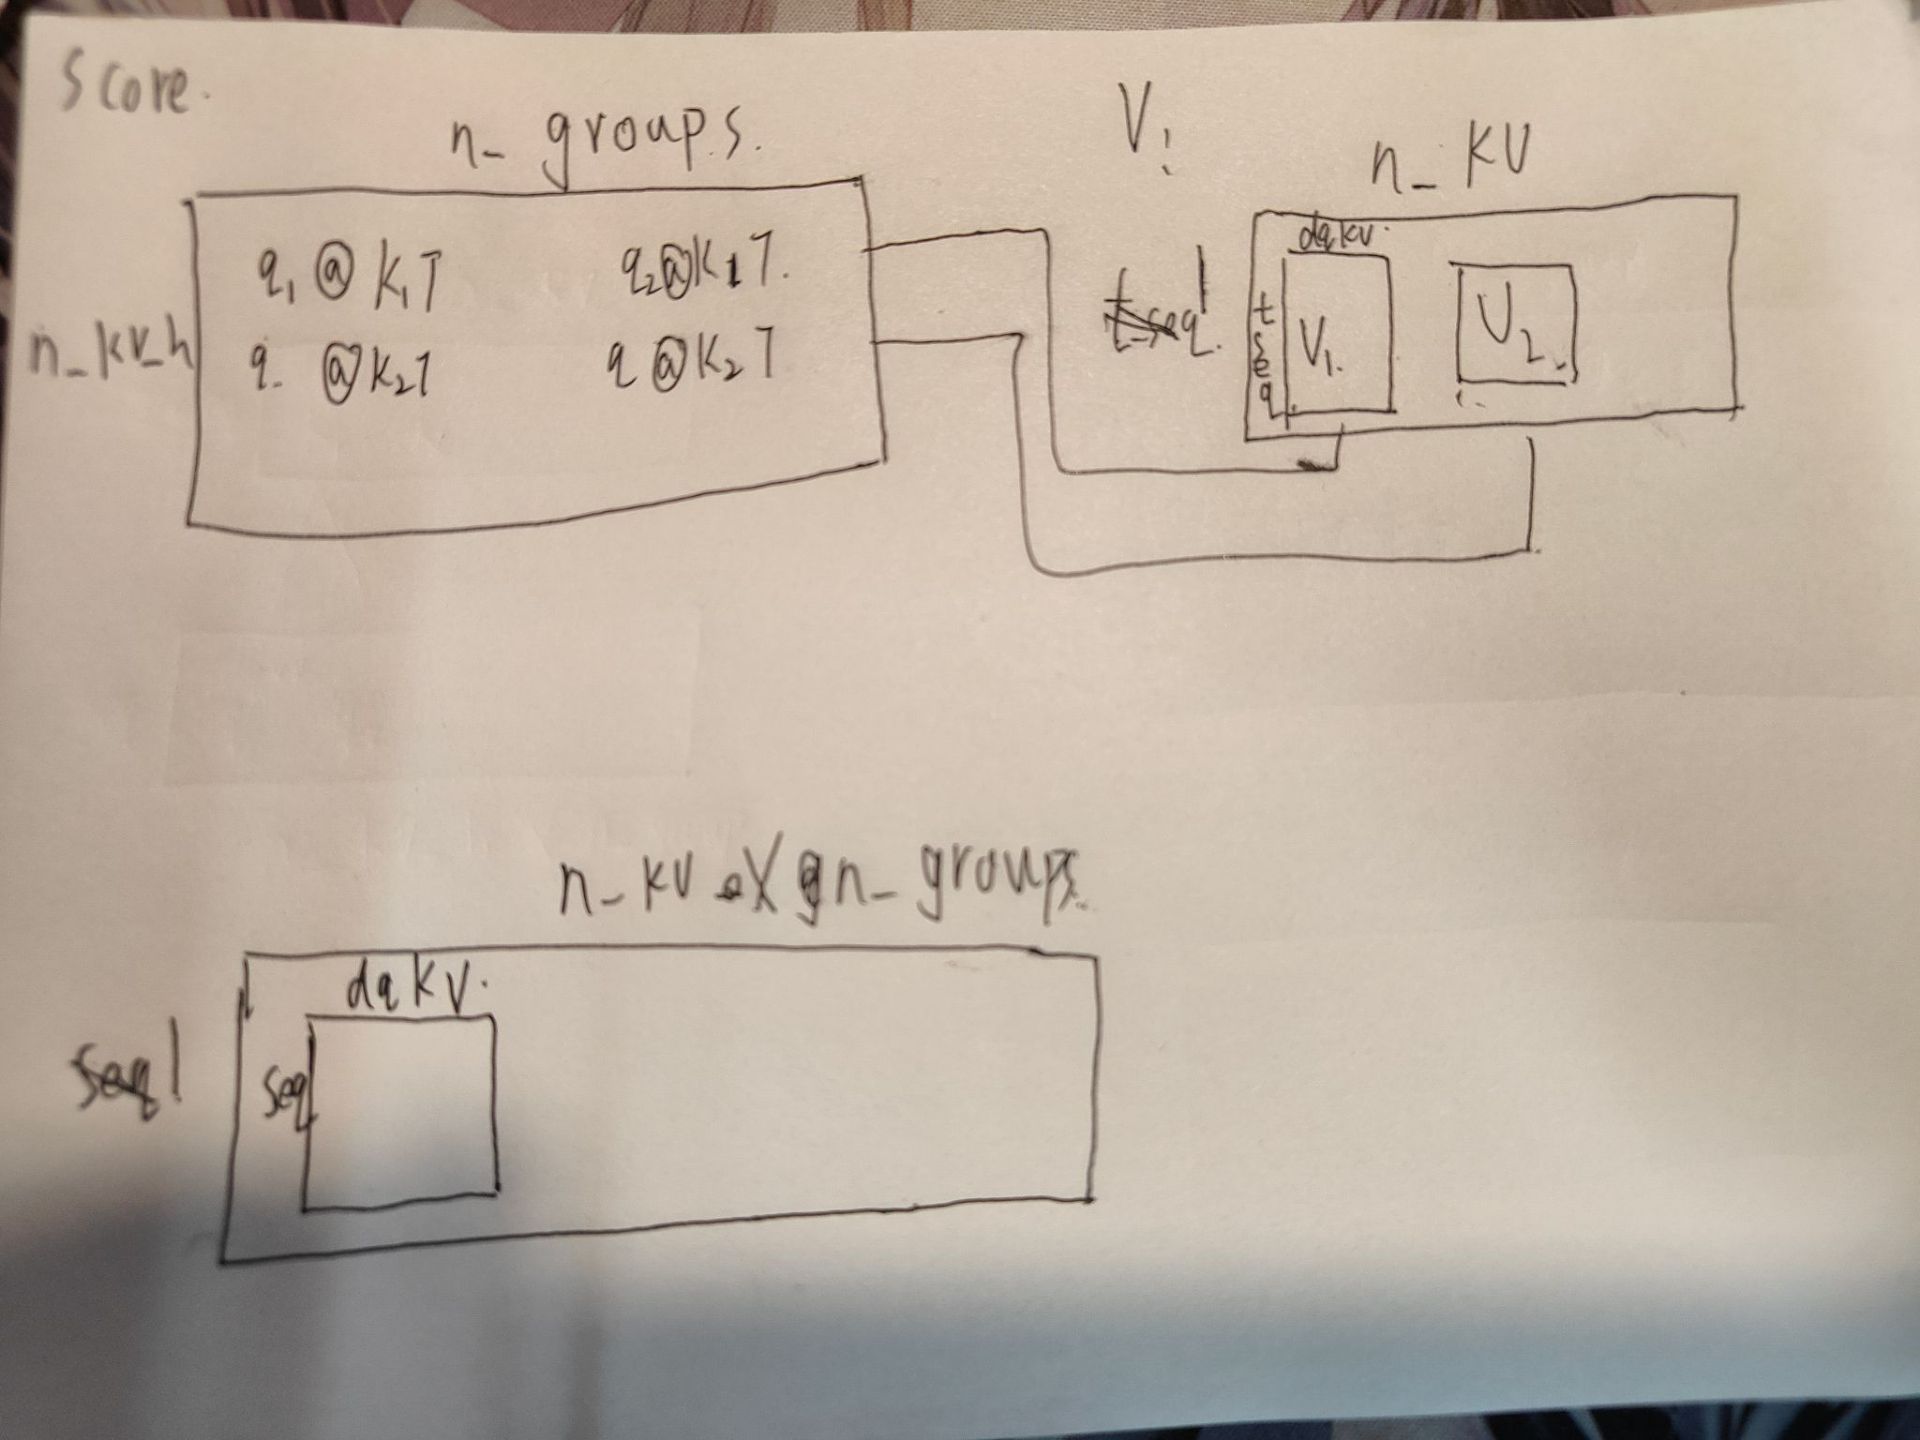 score.
n_ groups.
q₁ @ K₁T q₂@K₁T.
n_kv_h
q. @K₂T q @K₂T
V:
n_ KV
dqkv.
1
t_seq.
t seq
V₁.
V₂
n_ kv X n_ groups.
dqkv.
seq 1
seq